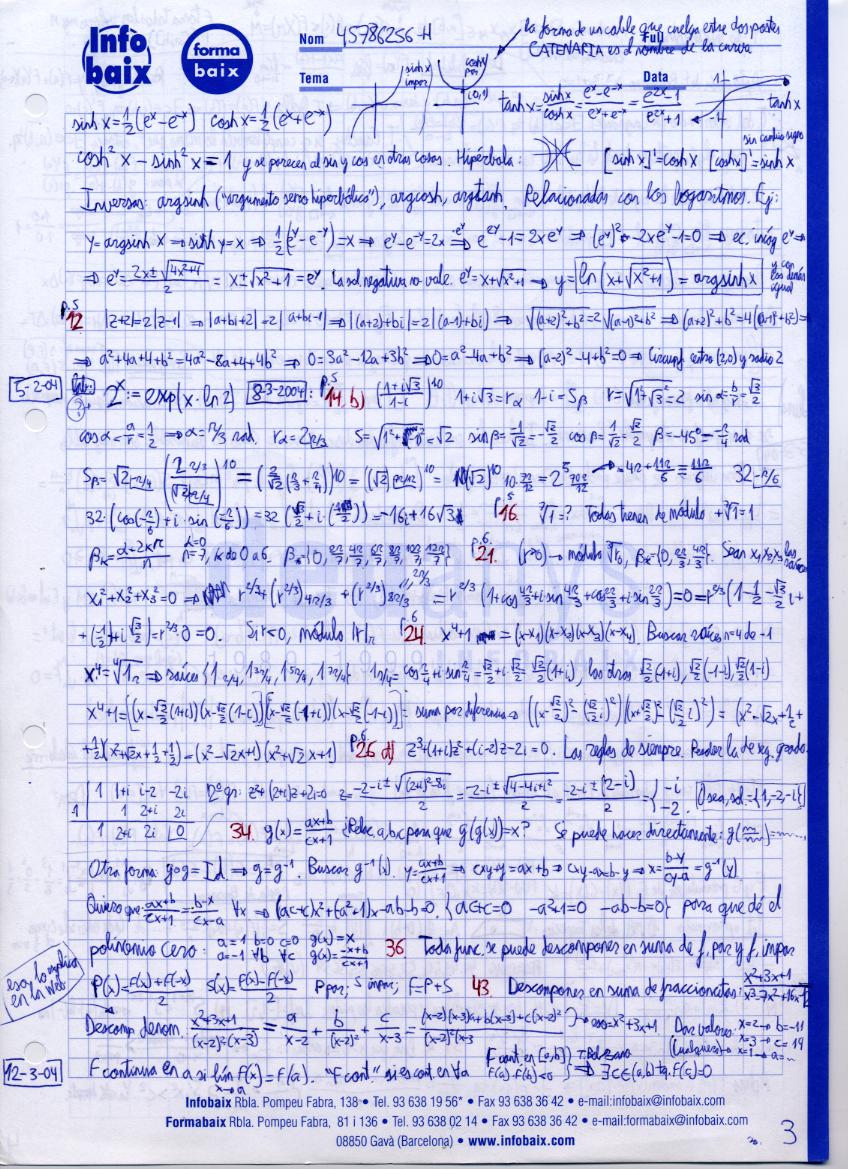 Info baix
forma baix
Nom 45786256-H
la forma de un cable que cuelga entre dos postes
CATENARIA es el nombre de la curva
Full
Tema
Data
sinh x impar
cosh x par
(0,1)
sinh x = 1/2 (e^x - e^-x) cosh x = 1/2 (e^x + e^-x)
tanh x = sinh x / cosh x = (e^x - e^-x)/(e^x + e^-x) = (e^2x - 1)/(e^2x + 1)
1
-1
tanh x
cosh² x - sinh² x = 1 y se parecen al sin y cos en otras cosas. Hipérbola: [sinh x]' = cosh x [cosh x]' = sinh x
sin cambio signo
Inversas: argsinh ("argumento seno hiperbólico"), argcosh, argtanh. Relacionadas con los logaritmos. Ej:
y = argsinh x ⇒ sinh y = x ⇒ 1/2 (e^y - e^-y) = x ⇒ e^y - e^-y = 2x ⇒ e^2y - 1 = 2x e^y ⇒ (e^y)² - 2x e^y - 1 = 0 ⇒ ec. incóg e^y ⇒
⇒ e^y = (2x ± √(4x²+4))/2 = x ± √(x²+1) = e^y. La sol negativa no vale. e^y = x + √(x²+1) ⇒ y = ln (x + √(x²+1)) = argsinh x y con los demás igual
p.5
12 |z+2| = 2|z-1| ⇒ |a+bi+2| = 2|a+bi-1| ⇒ |(a+2)+bi| = 2|(a-1)+bi| ⇒ √((a+2)²+b²) = 2√((a-1)²+b²) ⇒ (a+2)²+b² = 4((a-1)²+b²) ⇒
⇒ a²+4a+4+b² = 4a²-8a+4+4b² ⇒ 0 = 3a²-12a+3b² ⇒ 0 = a²-4a+b² ⇒ (a-2)²-4+b² = 0 ⇒ Circunf centro (2,0) y radio 2
5-2-04
2^x := exp(x·ln 2) 8-3-2004: p.5 14. b) ((1+i√3)/(1-i))^10 1+i√3 = r_α 1-i = s_β r = √(1²+√3²) = 2 sin α = b/r = √3/2
cos α = a/r = 1/2 ⇒ α = π/3 rad. r_α = 2_π/3 s = √2 sin β = -1/√2 = -√2/2 cos β = 1/√2 = √2/2 β = -45° = -π/4 rad
32 (cos(-π/6) + i · sin(-π/6)) = 32 = -16i + 16√3 p.5 16. ⁷√1 = ? Todas tienen de módulo +⁷√1 = 1
β_k = (α+2kπ)/n α=0 n=7, k de 0 a 6. β_k = {0, 2π/7, 4π/7, 6π/7, 8π/7, 10π/7, 12π/7} p.6. 21. (r>0) → módulo ³√r, β_k = {0, 2π/3, 4π/3}. Sean x1, x2, x3 las raíces
x1²+x2²+x3² = 0 ⇒ r^2/3 + (r^2/3)_4π/3 + (r^2/3)_8π/3 = r^2/3 (1 + cos 4π/3 + i sin 4π/3 + cos 2π/3 + i sin 2π/3) = 0 = r^2/3 (1 - 1/2 - √3/2 i +
+ (-1/2) + i √3/2) = r^2/3 · 0 = 0. Si r<0, módulo |r| p.6 24. x⁴+1 = (x-x1)(x-x2)(x-x3)(x-x4). Buscar raíces n=4 de -1
x⁴+1 = [(x-√2/2(1+i))(x-√2/2(1-i))][(x-√2/2(-1+i))(x-√2/2(-1-i))] = suma por diferencia ⇒ ((x-√2/2)² - (√2/2 i)²)((x+√2/2)² - (√2/2 i)²) = (x²-√2x+1/2+
+1/2)(x²+√2x+1/2+1/2) = (x²-√2x+1)(x²+√2x+1) p.6. 26 d) z³+(1+i)z²+(i-2)z-2i = 0. Las reglas de siempre.
1 1+i i-2 -2i
1 1 2+i 2i
1 2+i 2i 0
2º gr: z²+(2+i)z+2i=0 z = (-2-i ± √((2+i)²-8i))/2 = (-2-i ± √(4-4i+i²))/2 = (-2-i ± (2-i))/2 = { -i -2 O sea, sol = {1,-2,-i}
34. g(x) = (ax+b)/(cx+1) ¿Relac. a,b,c para que g(g(x)) = x? Se puede hacer directamente:
Otra forma g∘g = Id ⇒ g = g⁻¹. Buscar g⁻¹(x). y = (ax+b)/(cx+1) ⇒ cxy+y = ax+b ⇒ cxy-ax=b-y ⇒ x = (b-y)/(cy-a) = g⁻¹(y).
Quiero que: (ax+b)/(cx+1) = (b-x)/(cx-a) ∀x ⇒ (ac+c)x²+(-a²+1)x-ab-b=0. {ac+c=0 -a²+1=0 -ab-b=0} para que dé el
polinomio cero: a=1 b=0 c=0 g(x)=x
a=-1 ∀b ∀c g(x) = (-x+b)/(cx+1) 36. Toda func. se puede descomponer en suma de f. par y f. impar
P(x) = (F(x)+F(-x))/2 S(x) = (F(x)-F(-x))/2 P par; S impar; F=P+S 43. Descomponer en suma de fracciones
esay lo explica en la Web
Descomp denom. (x²+3x+1)/((x-2)²(x-3)) = a/(x-2) + b/(x-2)² + c/(x-3) = Dar valores (cualesquiera) x=2 → b=-11
x=3 → c=19
x=1 → a=...
12-3-04
F continua en a si lím x→a F(x) = F(a). "F cont." si es cont. en ∀a F cont. en [a,b] F(a)·F(b)<0 } T. Bolzano ⇒ ∃c∈(a,b) tq. F(c)=0
Infobaix Rbla. Pompeu Fabra, 138 • Tel. 93 638 19 56* • Fax 93 638 36 42 • e-mail:infobaix@infobaix.com
Formabaix Rbla. Pompeu Fabra, 81 i 136 • Tel. 93 638 02 14 • Fax 93 638 36 42 • e-mail:formabaix@infobaix.com
08850 Gavà (Barcelona) • www.infobaix.com
3